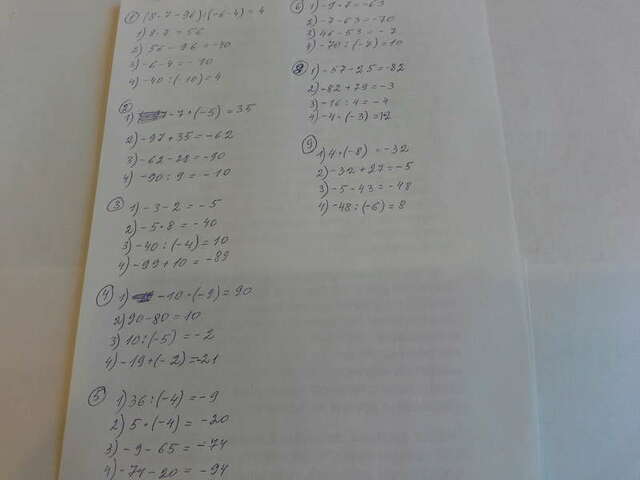 ① (8·7-96):(-6-4)=4
1) 8·7=56
2) 56-96=-40
3) -6-4=-10
4) -40:(10)=4
② 1) -7·(-5)=35
2) -97+35=-62
3) -62-28=-90
4) -90:9=-10
③ 1) -3-2=-5
2) -5·8=-40
3) -40:(-4)=10
4) -99+10=-89
④ 1) -10·(-9)=90
2) 90-80=10
3) 10:(-5)=-2
4) -19+(-2)=-21
⑤ 1) 36:(-4)=-9
2) 5·(-4)=-20
3) -9-65=-74
4) -74-20=-94
⑥ 1) -9·7=-63
2) -7-63=-70
3) 46-53=-7
4) -70:(-7)=10
⑧ 1) -57-25=-82
2) -82+79=-3
3) -16:4=-4
4) -4·(-3)=12
⑨ 1) 4·(-8)=-32
2) -32+27=-5
3) -5-43=-48
4) -48:(-6)=8